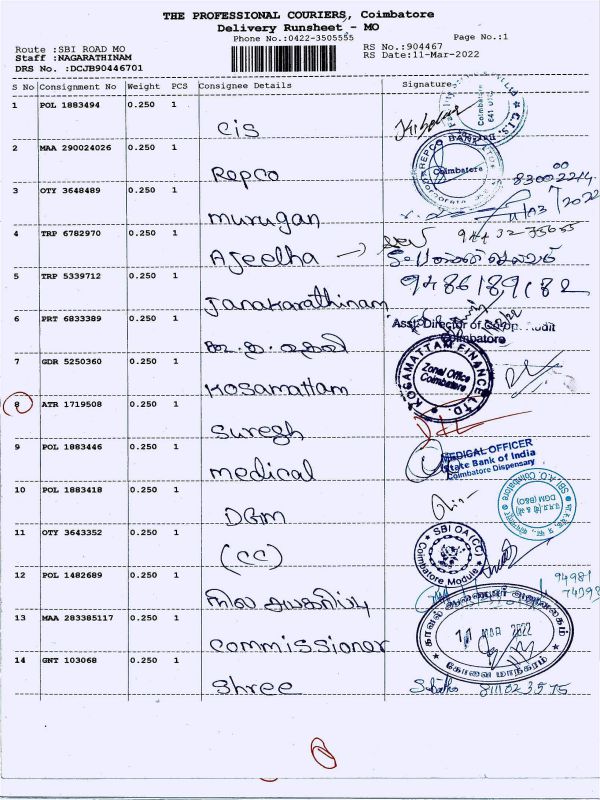 THE PROFESSIONAL COURIERS, Coimbatore
Delivery Runsheet - MO
Phone No.:0422-3505555
Page No.:1
Route :SBI ROAD MO
RS No.:904467
Staff :NAGARATHINAM
RS Date:11-Mar-2022
DRS No. :DCJB90446701
S No Consignment No Weight PCS Consignee Details Signature
1 POL 1883494 0.250 1
cis
2 MAA 290024026 0.250 1
Repco
REPCO BANK LTD
Coimbatore
3 OTY 3648489 0.250 1
murugan
11/03/2022
4 TRP 6782970 0.250 1
Ajeelha
5 TRP 5339712 0.250 1
9486189182
Janakarathinam
6 PRT 6833389 0.250 1
Asst. Director of Co-op. Audit
Coimbatore
7 GDR 5250360 0.250 1
Kosamattam
KOSAMATTAM FINANCE LTD.
Zonal Office
Coimbatore
8 ATR 1719508 0.250 1
suregh
9 POL 1883446 0.250 1
medical
MEDICAL OFFICER
State Bank of India
Coimbatore Dispensary
10 POL 1883418 0.250 1
DGM
SBI A.O. Coimbatore
DGM (B&O)
11 OTY 3643352 0.250 1
(CC)
SBI OA (CC)
Coimbatore Module
12 POL 1482689 0.250 1
நில அபகரிப்பு
94981
13 MAA 283385117 0.250 1
commissioner
காவல் ஆணையர் அலுவலகம்
11 MAR 2022
கோவை மாநகரம்
14 GNT 103068 0.250 1
Shree
8111023575